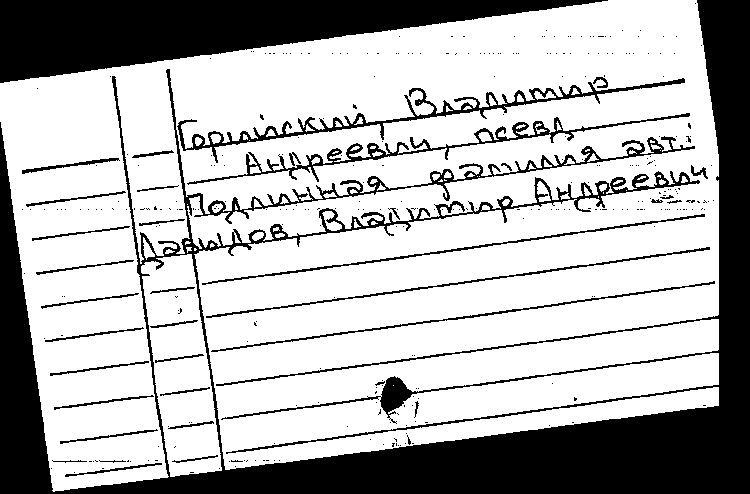 Горийский, Владимир
Андреевич, псевд.
Подлинная фамилия авт.:
Давыдов, Владимир Андреевич.